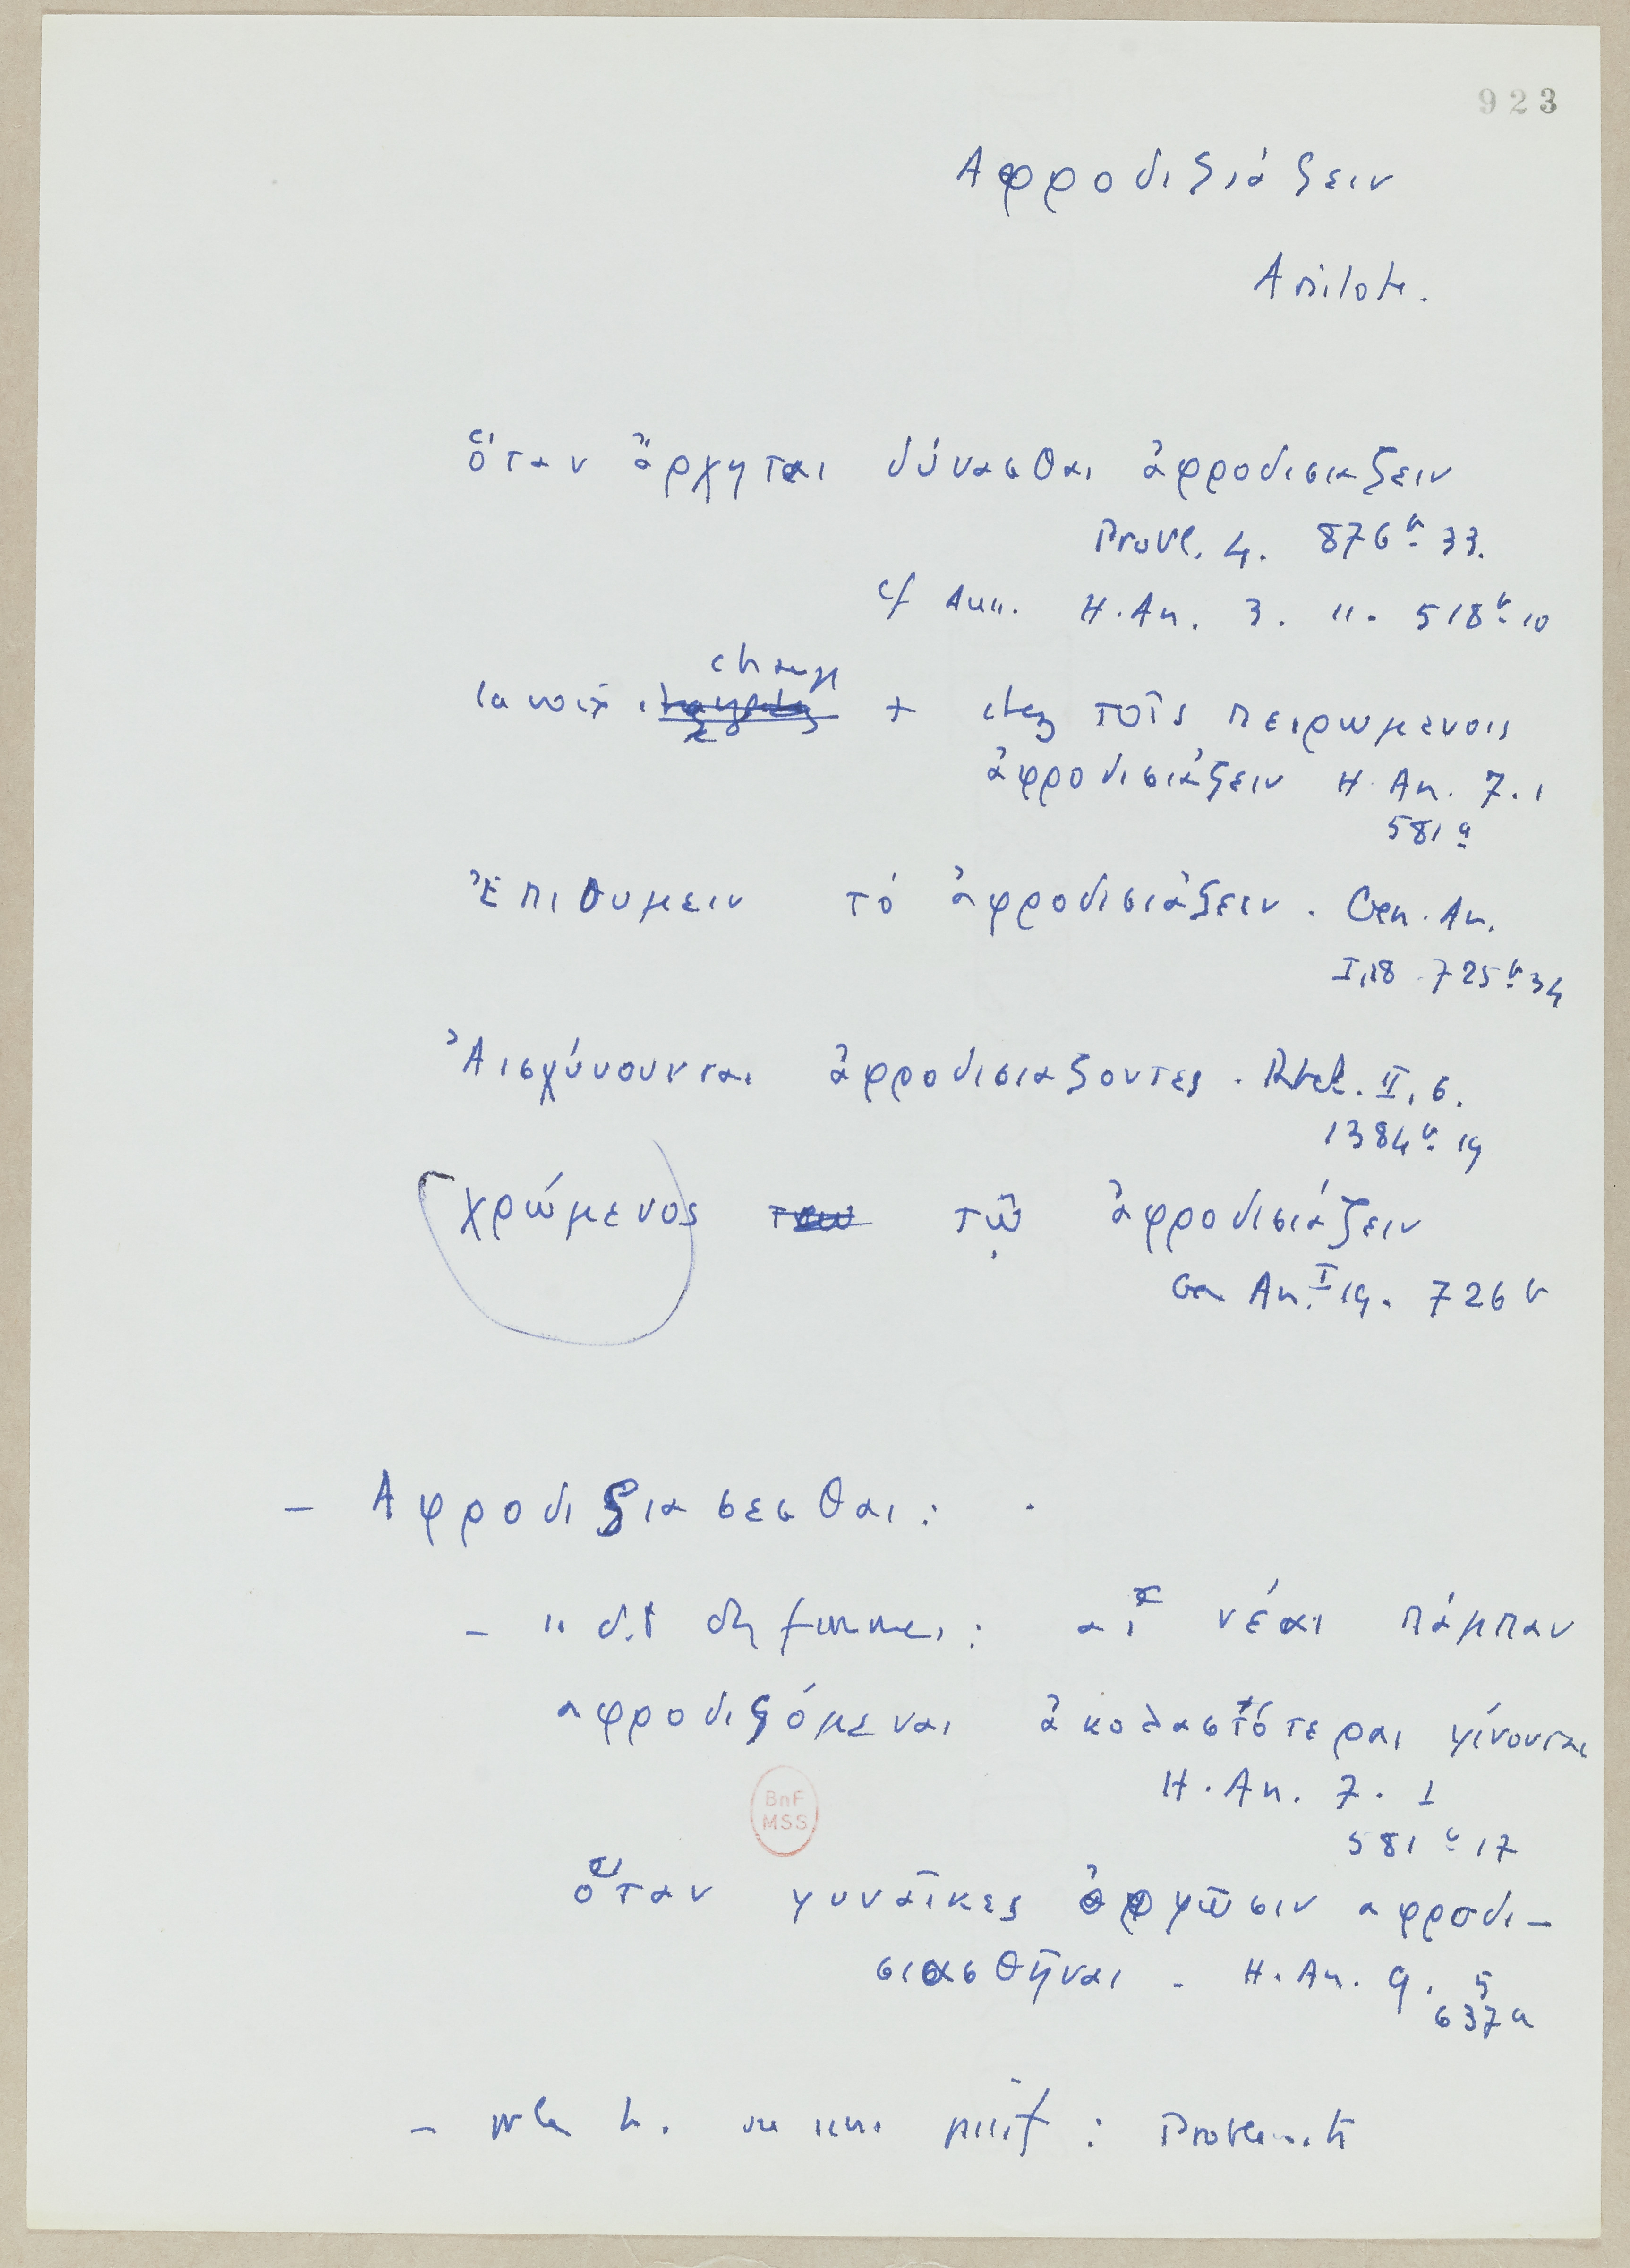 923
Αφροδιζιάζειν
Aristote.
ὅταν ἄρχηται δύνασθαι ἀφροδισιαζειν
Probl. 4. 876b 33.
cf Auss. H. An. 3. 11. 518b 10
change
la voix + chez τοῖς πειρωμενοις
ἀφροδισιάζειν H. An. 7. 1
581a
Ἐπιθυμειν τό ἀφροδισιάζειν. Gen. An.
I, 18 725b 34
Ἀισχύνουνται ἀφροδισιαζοντες. Rhet. II, 6.
1384b 19
χρώμενος τῷ ἀφροδισιάζειν
Gen An. I 19. 726b
– Αφροδιζιασεσθαι :
– se dit des femmes : αἱ νέαι πάμπαν
αφροδιζόμεναι ἀκολαστότεραι γίνονται
H. An. 7. 1
581b 17
ὅταν γυναῖκες ὀργῶσιν αφροδι–
σιασθῆναι – H. An. 9. 5
637a
– pr les h. au sens passif : Problem.
BnF
MSS